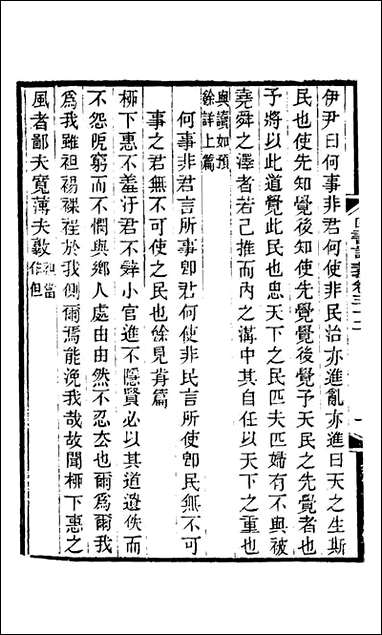 伊尹曰何事非君何使非民治亦進亂亦進曰天之生斯
民也使先知覺後知使先覺覺後覺予天民之先覺者也
予將以此道覺此民也思天下之民匹夫匹婦有不與被
堯舜之澤者若己推而內之溝中其自任以天下之重也
與讀如預
餘詳上篇
何事非君言所事卽君何使非民言所使卽民無不可
事之君無不可使之民也餘見前篇
柳下惠不羞汙君不辭小官進不隱賢必以其道遺佚而
不怨阨窮而不憫與鄉人處由由然不忍去也爾爲爾我
爲我雖袒裼裸裎於我側爾焉能浼我哉故聞柳下惠之
風者鄙夫寬薄夫敦